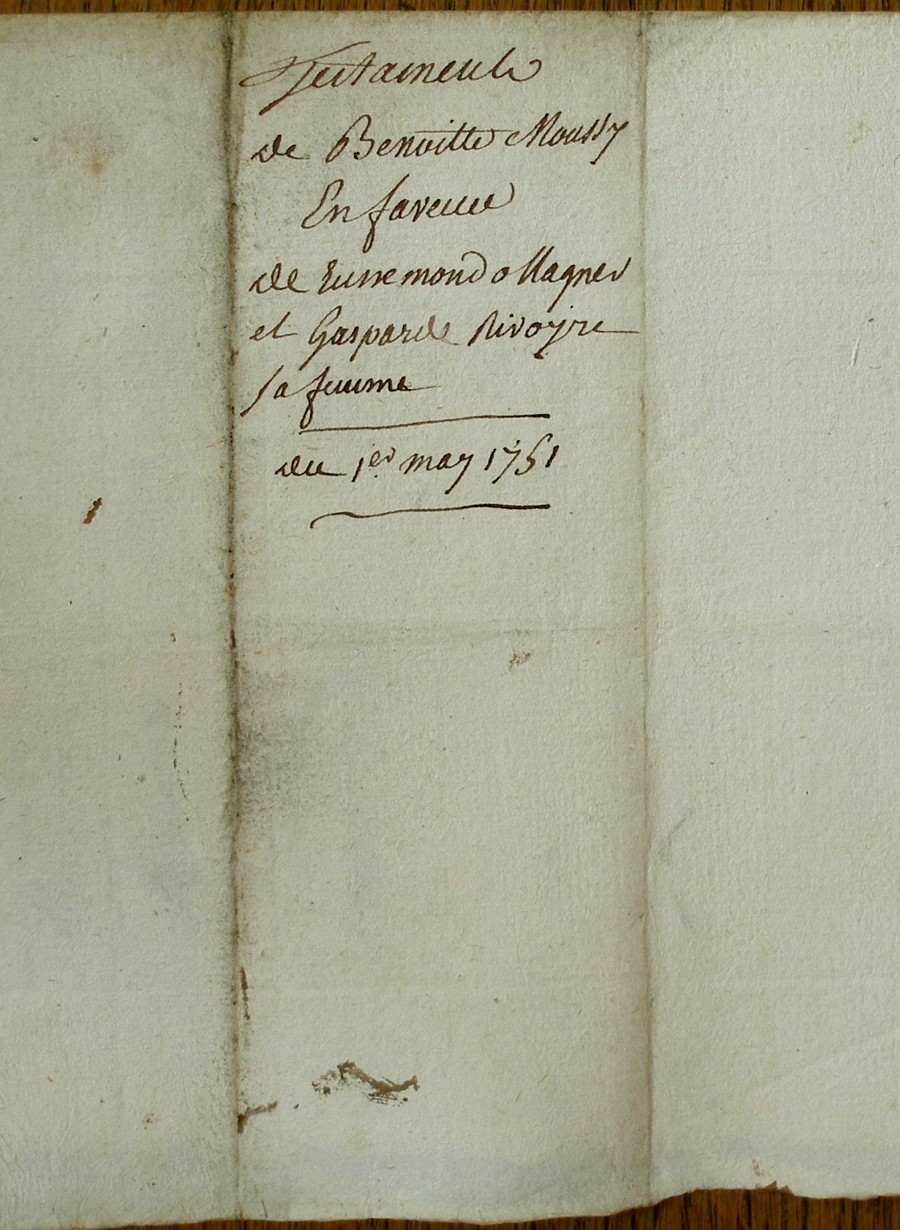 Testament
de Benoitte Moussy
En faveur
de Ennemond Magner
et Gasparde Rivoyre
sa femme
du 1er may 1751